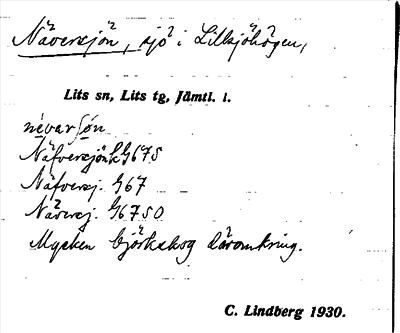 Näversjön, sjö i Lillsjöhögen,
Lits sn, Lits tg, Jämtl. l.
nèvarʃøn
Näfversjön G67S
Näfversj. G67
Näversj. G67SO
Mycken björkskog däromkring.
C. Lindberg 1930.